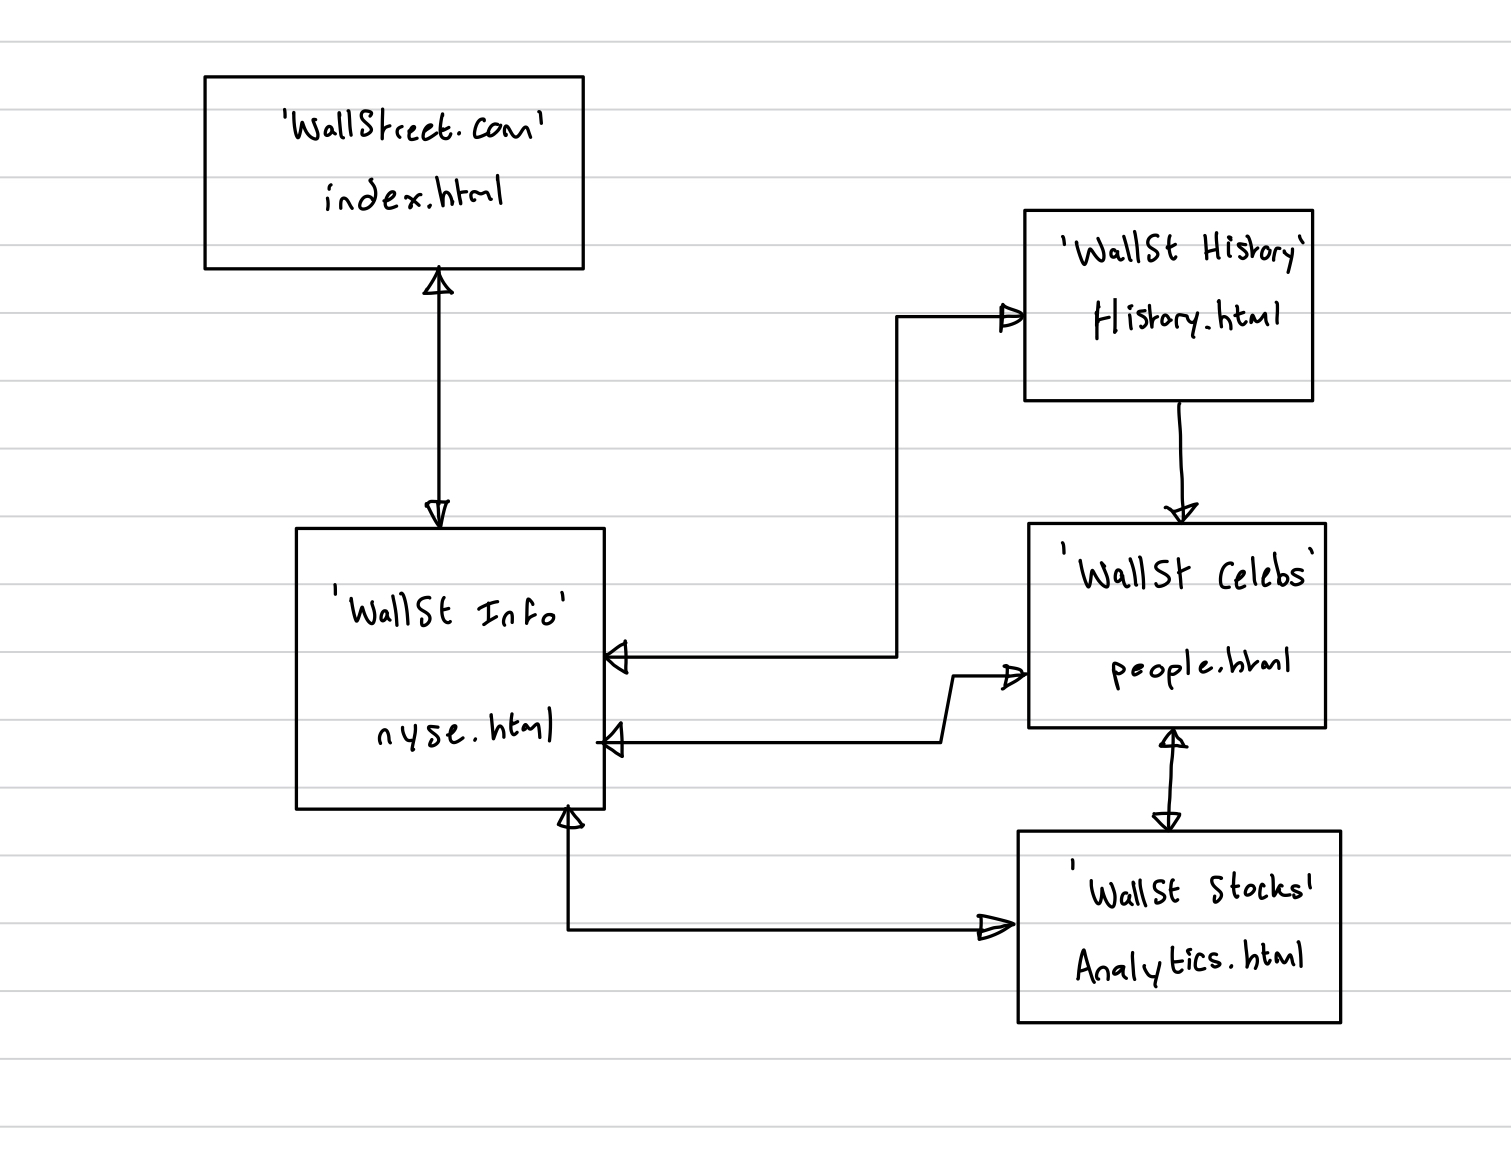 'WallStreet.com'
index.html
'WallSt History'
History.html
'WallSt Info'
nyse.html
'WallSt Celebs'
people.html
'WallSt Stocks'
Analytics.html